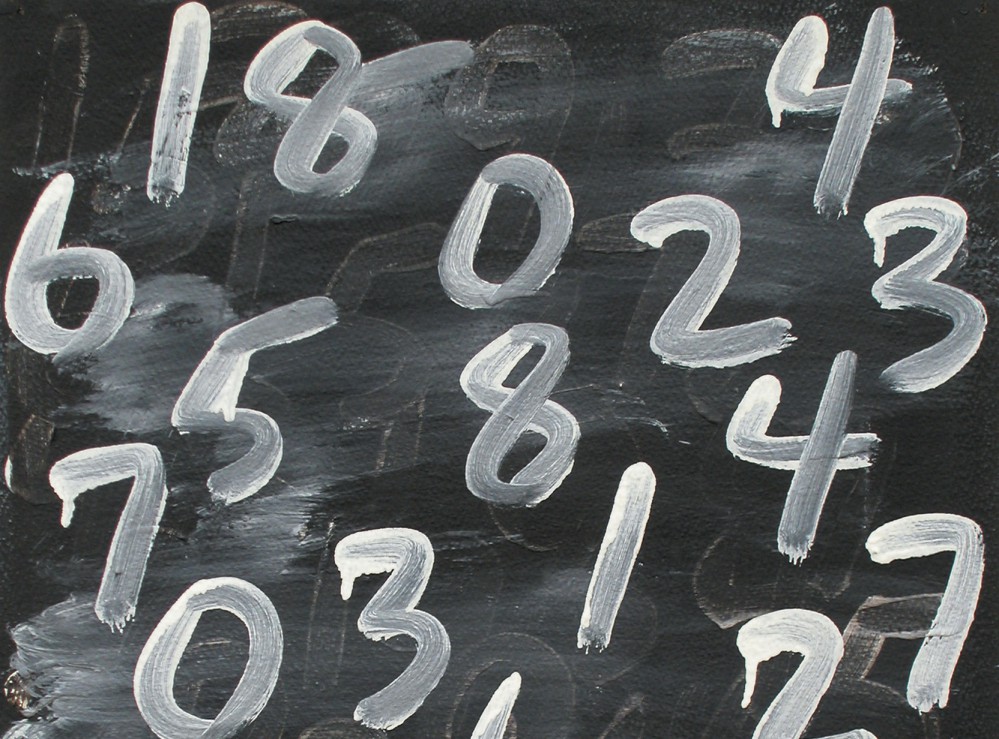 1 8 4
6 0 2 3
5 8 4
7 3 1 7
0